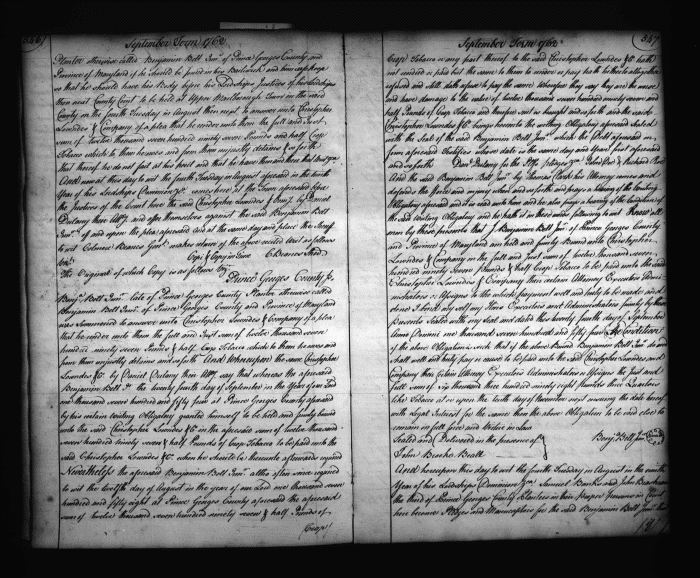 346
September Term 1762
Planter otherwise called Benjamin Bell Junr. of Prince Georges County and
Province of Maryland if he should be found in his Bailiwick and him safe keep
so that he should have his Body before his Lordships Justices of his Lordships
then next County Court to be held at Upper Marlborough Town in the said
County on the fourth Tuesday in August then next to answer unto Christopher
Lowndes & Company of a plea that he render unto them the full and Just
sum of twelve thousand seven hundred ninety seven Pounds and half Crop
Tobacco which to them he owes and from them unjustly detains & so forth
that thereof he do not fail at his peril and that he have then and there that Writ &ca
And now at this day to wit the fourth Tuesday in August aforesaid in the tenth
Year of his Lordships Dominion &c comes here at the Town aforesaid before
the Justices of the Court here the said Christopher Lowndes & Compy. by Daniel
Dulany their Atty. and offer themselves against the said Benjamin Bell
Junr. of and upon the plea aforesaid and at the same day and place the Sheriff
to wit Colmore Beanes Gent. makes return of the afore recited Writ as follows
towit
Copi & Copy in Court C Beanes Shff
The Original of which Copy is as follows towit
Prince Georges County Ss.
Benja. Bell Junr. late of Prince Georges County Planter otherwise called
Benjamin Bell Junr. of Prince Georges County and Province of Maryland
was Summoned to answer unto Christopher Lowndes & Company of a plea
that he render unto them the full and Just sum of twelve thousand seven
hundred ninety seven Pounds & half Crop Tobacco which to them he owes and
from them unjustly detains and so forth And Whereupon the same Christopher
Lowndes &C by Daniel Dulany their Atty. say that whereas the aforesaid
Benjamin Bell the twenty fourth day of September in the Year of our Lord
one thousand seven hundred and fifty four at Prince Georges County aforesaid
by his certain writing Obligatory granted himself to be held and firmly bound
unto the said Christopher Lowndes &C in the aforesaid sum of twelve thousand
seven hundred ninety seven & half Pounds of Crop Tobacco to be paid unto the
said Christopher Lowndes &C when he should be thereunto afterwards required
Nevertheless the aforesaid Benjamin Bell Junr. altho often since required
to wit the twelfth day of August in the year of our Lord one thousand seven
hundred and fifty eight at Prince Georges County aforesaid the aforesaid
sum of twelve thousand seven hundred ninety seven & half Pounds of
Crop
347
September Term 1762
Crop Tobacco or any part thereof to the said Christopher Lowndes &C hath
not rendered or paid but the same to them to render or pay hath hitherto altogether
refused and still doth refuse to pay the same Wherefore they say they are the worse
and have damage to the value of twelve thousand seven hundred ninety seven and
half Pounds of Crop Tobacco and therefore Suit is brought and so forth and the said
Christopher Lowndes &C brings herewith the writing Obligatory aforesaid Sealed
with the Seal of the said Benjamin Bell Junr. which the Debt aforesaid in
form aforesaid testifies whose date is the same day and Year first aforesaid
and so forth Danl. Dulany for the Plfs. Pledges &ca John Doe & Richard Roe
And the said Benjamin Bell Junr. by Thomas Clark his Attorney comes and
defends the force and injury when and so forth and prays a hearing of the writing
Obligatory aforesaid and it is read unto him and he also prays a hearing of the condition of
the said Writing Obligatory and he hath it in these words following to wit Know all
men by these presents that I Benjamin Bell Junr. of Prince Georges County
and Province of Maryland am held and firmly Bound unto Christopher
Lowndes & Company in the full and Just sum of twelve thousand seven
hundred ninety seven Pounds & half Crop Tobacco to be paid unto the said
Christopher Lowndes & Company their certain Attorney Executors Admi-
nistrators or Assigns to the which payment well and truly to be made and
done I bind my self my Heirs Executors and Administrators firmly by these
Presents Sealed with my Seal and dated this twenty fourth day of September
Anno Domini one thousand seven hundred and fifty four The Condition
of the above Obligation is such that if the above Bound Benjamin Bell Junr. do and
shall well and truly pay or cause to be paid unto the said Christopher Lowndes and
Company their Certain Attorney Executors Administrators or Assigns the just and
full sum of six thousand three hundred ninety eight Pounds three Quarters
like Tobacco at or upon the tenth day of November next ensuing the date hereof
with Legal Interest for the same then the above Obligation to be void else to
remain in full force and virtue in Law
Sealed and Delivered in the presence of
Benja. Bell Junr.
John Beall
And hereupon this day to wit the fourth Tuesday in August in the ninth
Year of his Lordships Dominion &ca Samuel Busher and John
the third of Prince Georges County Planters in their Proper Persons in Court
here become Pledges and Mainpernors for the said Benjamin Bell Junr. that